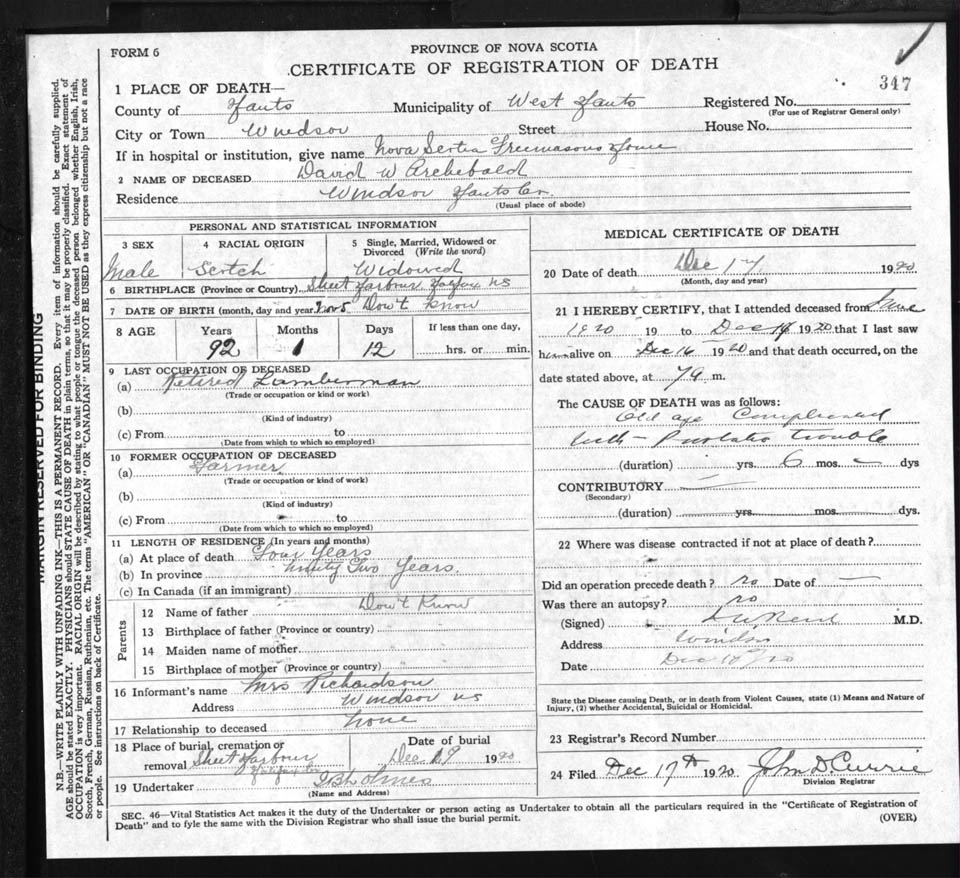 FORM 6
PROVINCE OF NOVA SCOTIA
CERTIFICATE OF REGISTRATION OF DEATH
347
1 PLACE OF DEATH—
County of Hants Municipality of West Hants Registered No.
(For use of Registrar General only)
City or Town Windsor Street House No.
If in hospital or institution, give name Nova Scotia Freemasons Home
2 NAME OF DECEASED David W Archebald
Residence Windsor Hants Co.
(Usual place of abode)
PERSONAL AND STATISTICAL INFORMATION
3 SEX 4 RACIAL ORIGIN 5 Single, Married, Widowed or Divorced (Write the word)
Male Scotch Widowed
6 BIRTHPLACE (Province or Country) Sheet Harbour NS
7 DATE OF BIRTH (month, day and year) Nov 5 Don't Know
8 AGE Years Months Days If less than one day,
92 1 12 hrs. or min.
9 LAST OCCUPATION OF DECEASED
(a) Retired Lumberman
(Trade or occupation or kind or work)
(b)
(Kind of industry)
(c) From to
(Date from which to which so employed)
10 FORMER OCCUPATION OF DECEASED
(a) Farmer
(Trade or occupation or kind of work)
(b)
(Kind of industry)
(c) From to
(Date from which to which so employed)
11 LENGTH OF RESIDENCE (In years and months)
(a) At place of death Four Years
(b) In province Ninety Two Years.
(c) In Canada (if an immigrant)
Parents
12 Name of father Don't Know
13 Birthplace of father (Province or country)
14 Maiden name of mother
15 Birthplace of mother (Province or country)
16 Informant's name Mrs Richardson
Address Windsor NS
17 Relationship to deceased None
18 Place of burial, cremation or removal Sheet Harbour Date of burial Dec 19 1920
Halifax Co
19 Undertaker Holmes
(Name and Address)
MEDICAL CERTIFICATE OF DEATH
20 Date of death Dec 17 1920
(Month, day and year)
21 I HEREBY CERTIFY, that I attended deceased from June
1920 19 to Dec 16 1920 that I last saw
him alive on Dec 16 1920 and that death occurred, on the
date stated above, at 7 a m.
The CAUSE OF DEATH was as follows:
Old age Complicated
with trouble
(duration) yrs. 6 mos. dys
CONTRIBUTORY
(Secondary)
(duration) yrs. mos. dys.
22 Where was disease contracted if not at place of death?
Did an operation precede death? no Date of —
Was there an autopsy? no
(Signed) M.D.
Address Windsor
Date Dec 18 20
State the Disease causing Death, or in death from Violent Causes, state (1) Means and Nature of
Injury, (2) whether Accidental, Suicidal or Homicidal.
23 Registrar's Record Number
24 Filed Dec 17th 1920 John D Currie
Division Registrar
SEC. 46—Vital Statistics Act makes it the duty of the Undertaker or person acting as Undertaker to obtain all the particulars required in the "Certificate of Registration of
Death" and to fyle the same with the Division Registrar who shall issue the burial permit. (OVER)
MARGIN RESERVED FOR BINDING
N.B.—WRITE PLAINLY WITH UNFADING INK—THIS IS A PERMANENT RECORD. Every item of information should be carefully supplied.
AGE should be stated EXACTLY. PHYSICIANS should STATE CAUSE OF DEATH in plain terms, so that it may be properly classified. Exact statement of
OCCUPATION is very important. RACIAL ORIGIN will be described by stating to what people or tongue the deceased person belonged whether English, Irish,
Scotch, French, German, Russian, Ruthenian, etc. The terms "AMERICAN" OR "CANADIAN" MUST NOT BE USED as they express citizenship but not a race
or people. See instructions on back of Certificate.